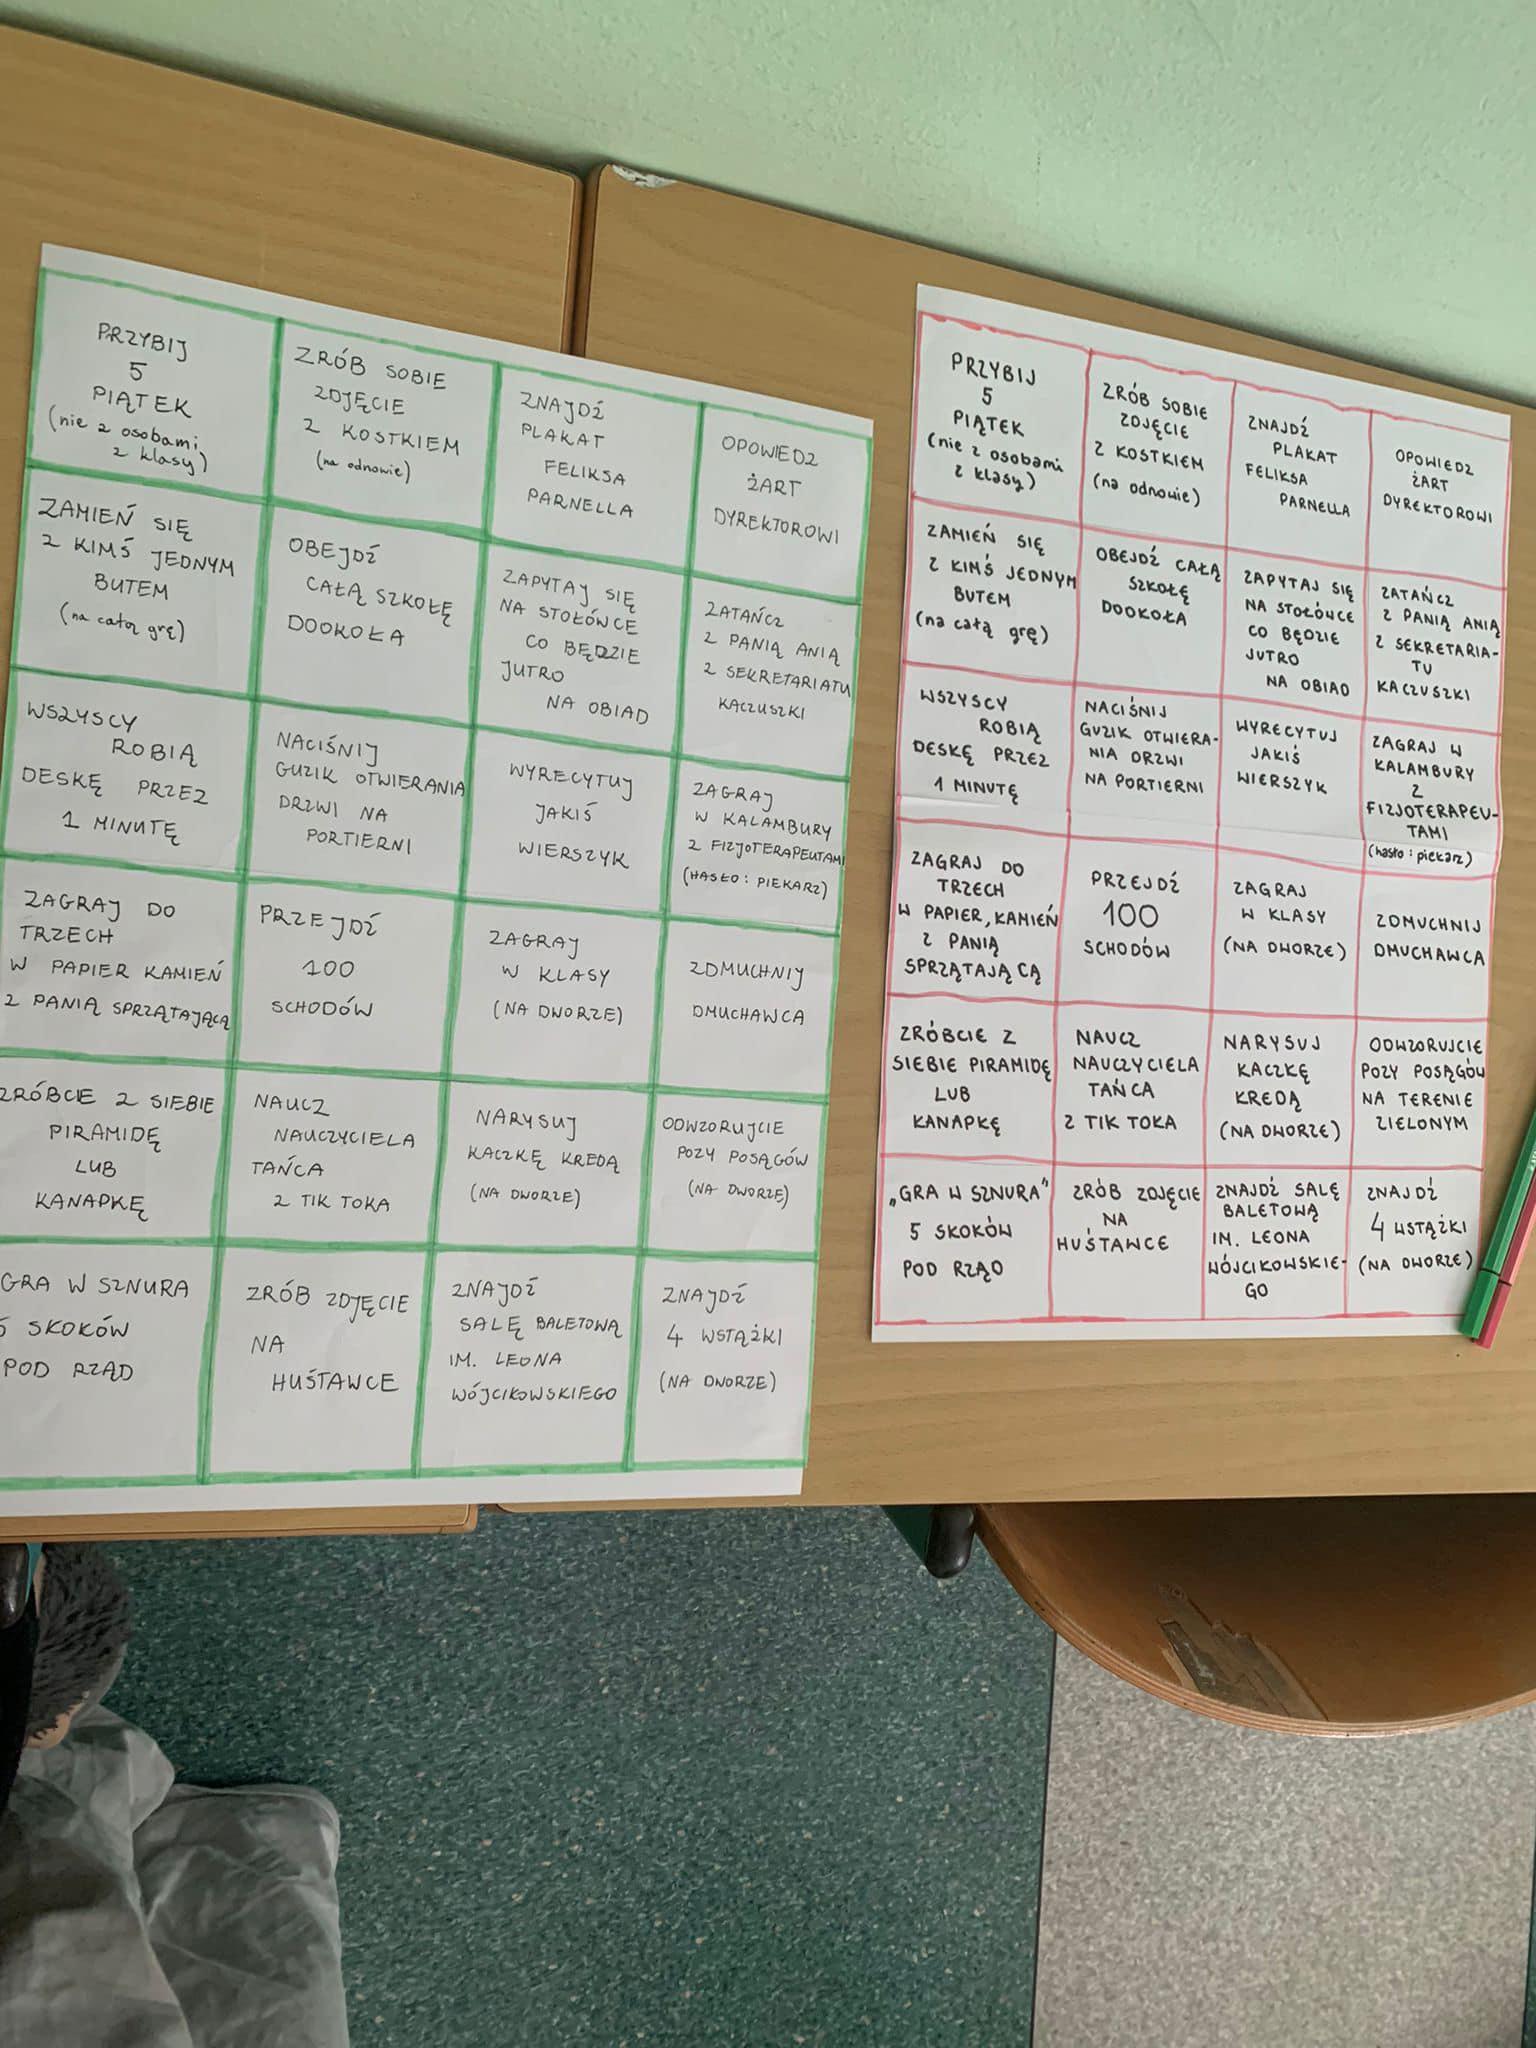 PRZYBIJ
5
PIĄTEK
(nie z osobami
z klasy)
ZRÓB SOBIE
ZDJĘCIE
Z KOSTKIEM
(na odnowie)
ZNAJDŹ
PLAKAT
FELIKSA
PARNELLA
OPOWIEDZ
ŻART
DYREKTOROWI
ZAMIEŃ SIĘ
Z KIMŚ JEDNYM
BUTEM
(na całą grę)
OBEJDŹ
CAŁĄ SZKOŁĘ
DOOKOŁA
ZAPYTAJ SIĘ
NA STOŁÓWCE
CO BĘDZIE
JUTRO
NA OBIAD
ZATAŃCZ
Z PANIĄ ANIĄ
Z SEKRETARIATU
KACZUSZKI
WSZYSCY
ROBIĄ
DESKĘ PRZEZ
1 MINUTĘ
NACIŚNIJ
GUZIK OTWIERANIA
DRZWI NA
PORTIERNI
WYRECYTUJ
JAKIŚ
WIERSZYK
ZAGRAJ
W KALAMBURY
Z FIZJOTERAPEUTAMI
(HASŁO: PIEKARZ)
ZAGRAJ DO
TRZECH
W PAPIER KAMIEŃ
Z PANIĄ SPRZĄTAJĄCĄ
PRZEJDŹ
100
SCHODÓW
ZAGRAJ
W KLASY
(NA DWORZE)
ZDMUCHNIJ
DMUCHAWCA
ZRÓBCIE Z SIEBIE
PIRAMIDĘ
LUB
KANAPKĘ
NAUCZ
NAUCZYCIELA
TAŃCA
Z TIK TOKA
NARYSUJ
KACZKĘ KREDĄ
(NA DWORZE)
ODWZORUJCIE
POZY POSĄGÓW
(NA DWORZE)
GRA W SZNURA
5 SKOKÓW
POD RZĄD
ZRÓB ZDJĘCIE
NA
HUŚTAWCE
ZNAJDŹ
SALĘ BALETOWĄ
IM. LEONA
WÓJCIKOWSKIEGO
ZNAJDŹ
4 WSTĄŻKI
(NA DWORZE)
PRZYBIJ
5
PIĄTEK
(nie z osobami
z klasy)
ZRÓB SOBIE
ZDJĘCIE
Z KOSTKIEM
(na odnowie)
ZNAJDŹ
PLAKAT
FELIKSA
PARNELLA
OPOWIEDZ
ŻART
DYREKTOROWI
ZAMIEŃ SIĘ
Z KIMŚ JEDNYM
BUTEM
(na całą grę)
OBEJDŹ CAŁĄ
SZKOŁĘ
DOOKOŁA
ZAPYTAJ SIĘ
NA STOŁÓWCE
CO BĘDZIE
JUTRO
NA OBIAD
ZATAŃCZ
Z PANIĄ ANIĄ
Z SEKRETARIA-
TU
KACZUSZKI
WSZYSCY
ROBIĄ
DESKĘ PRZEZ
1 MINUTĘ
NACIŚNIJ
GUZIK OTWIERA-
NIA DRZWI
NA PORTIERNI
WYRECYTUJ
JAKIŚ
WIERSZYK
ZAGRAJ W
KALAMBURY
Z
FIZJOTERAPEU-
TAMI
(hasło: piekarz)
ZAGRAJ DO
TRZECH
W PAPIER, KAMIEŃ
Z PANIĄ
SPRZĄTAJĄCĄ
PRZEJDŹ
100
SCHODÓW
ZAGRAJ
W KLASY
(NA DWORZE)
ZDMUCHNIJ
DMUCHAWCA
ZRÓBCIE Z
SIEBIE PIRAMIDĘ
LUB
KANAPKĘ
NAUCZ
NAUCZYCIELA
TAŃCA
Z TIK TOKA
NARYSUJ
KACZKĘ
KREDĄ
(NA DWORZE)
ODWZORUJCIE
POZY POSĄGÓW
NA TERENIE
ZIELONYM
„GRA W SZNURA"
5 SKOKÓW
POD RZĄD
ZRÓB ZDJĘCIE
NA
HUŚTAWCE
ZNAJDŹ SALĘ
BALETOWĄ
IM. LEONA
WÓJCIKOWSKIE-
GO
ZNAJDŹ
4 WSTĄŻKI
(NA DWORZE)